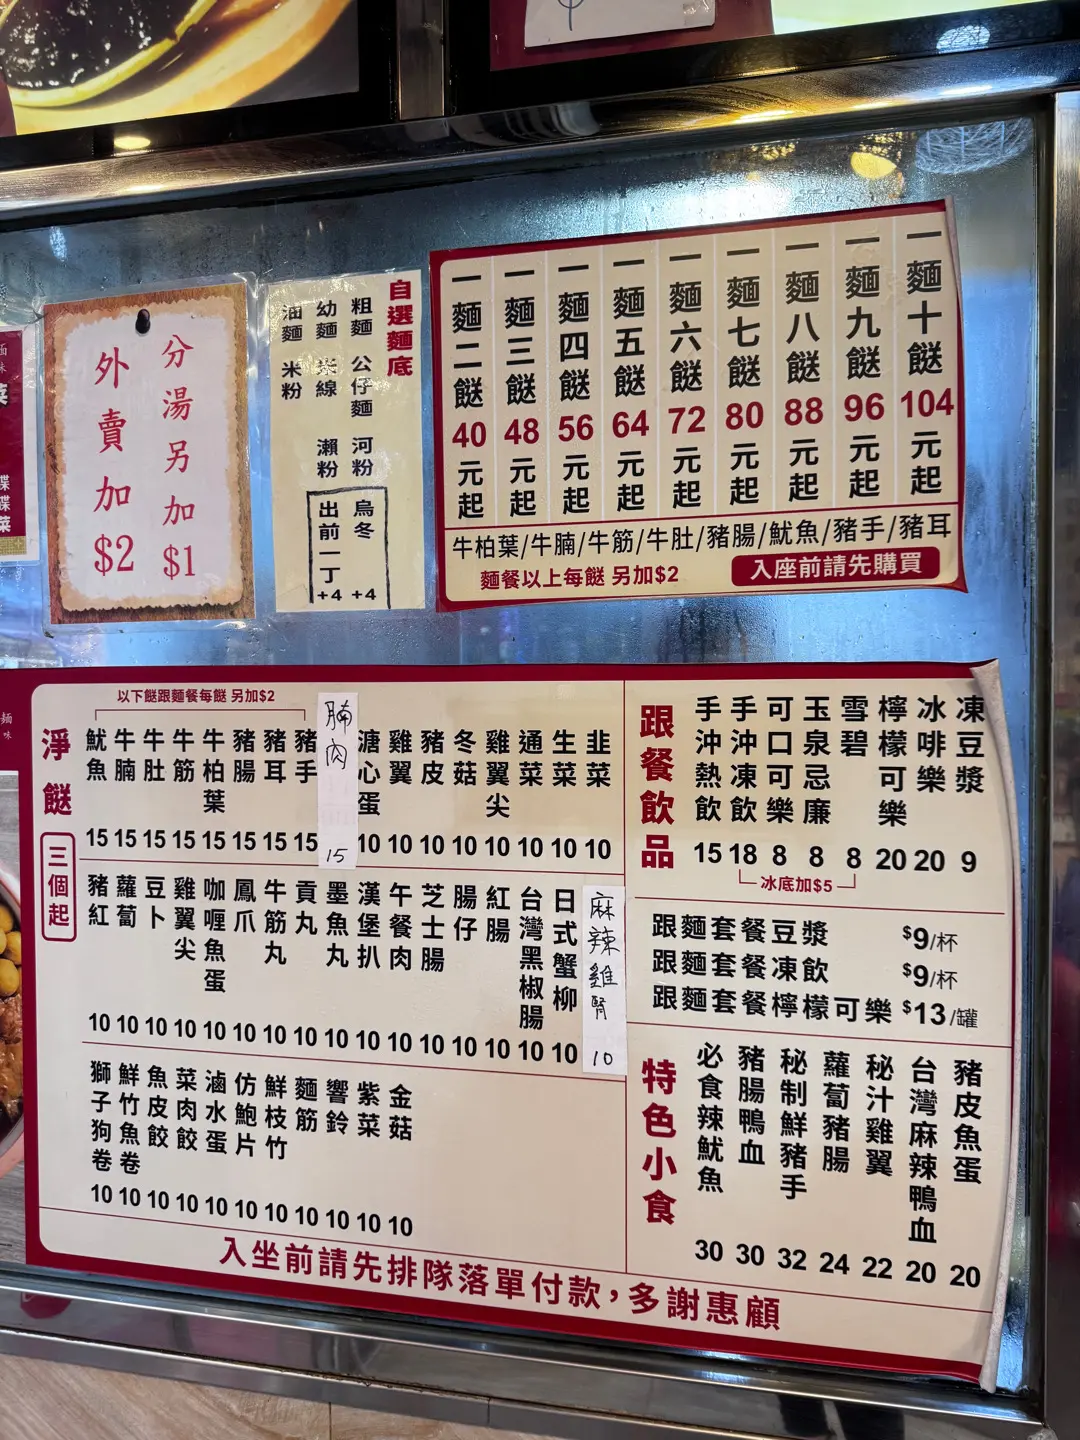 分湯另加$1
外賣加$2
自選麵底
粗麵 公仔麵 河粉 烏冬 +4
幼麵 米線 瀨粉 出前一丁 +4
油麵 米粉
一麵二餸 40元起
一麵三餸 48元起
一麵四餸 56元起
一麵五餸 64元起
一麵六餸 72元起
一麵七餸 80元起
一麵八餸 88元起
一麵九餸 96元起
一麵十餸 104元起
牛柏葉/牛腩/牛筋/牛肚/豬腸/魷魚/豬手/豬耳
麵餐以上每餸 另加$2
入座前請先購買
淨餸
三個起
以下餸跟麵餐每餸 另加$2
魷魚 15
牛腩 15
牛肚 15
牛筋 15
牛柏葉 15
豬腸 15
豬耳 15
豬手 15
腩肉 15
溏心蛋 10
雞翼 10
豬皮 10
冬菇 10
雞翼尖 10
通菜 10
生菜 10
韭菜 10
豬紅 10
蘿蔔 10
豆卜 10
雞翼尖 10
咖喱魚蛋 10
鳳爪 10
牛筋丸 10
貢丸 10
墨魚丸 10
漢堡扒 10
午餐肉 10
芝士腸 10
腸仔 10
紅腸 10
台灣黑椒腸 10
日式蟹柳 10
麻辣雞腎 10
獅子狗卷 10
鮮竹魚卷 10
魚皮餃 10
菜肉餃 10
滷水蛋 10
仿鮑片 10
鮮枝竹 10
麵筋 10
響鈴 10
紫菜 10
金菇 10
跟餐飲品
手沖熱飲 15
手沖凍飲 18
可口可樂 8
玉泉忌廉 8
雪碧 8
檸檬可樂 20
冰啡樂 20
凍豆漿 9
冰底加$5
跟麵套餐豆漿 $9/杯
跟麵套餐凍飲 $9/杯
跟麵套餐檸檬可樂 $13/罐
特色小食
必食辣魷魚 30
豬腸鴨血 30
秘制鮮豬手 32
蘿蔔豬腸 24
秘汁雞翼 22
台灣麻辣鴨血 20
豬皮魚蛋 20
入坐前請先排隊落單付款，多謝惠顧